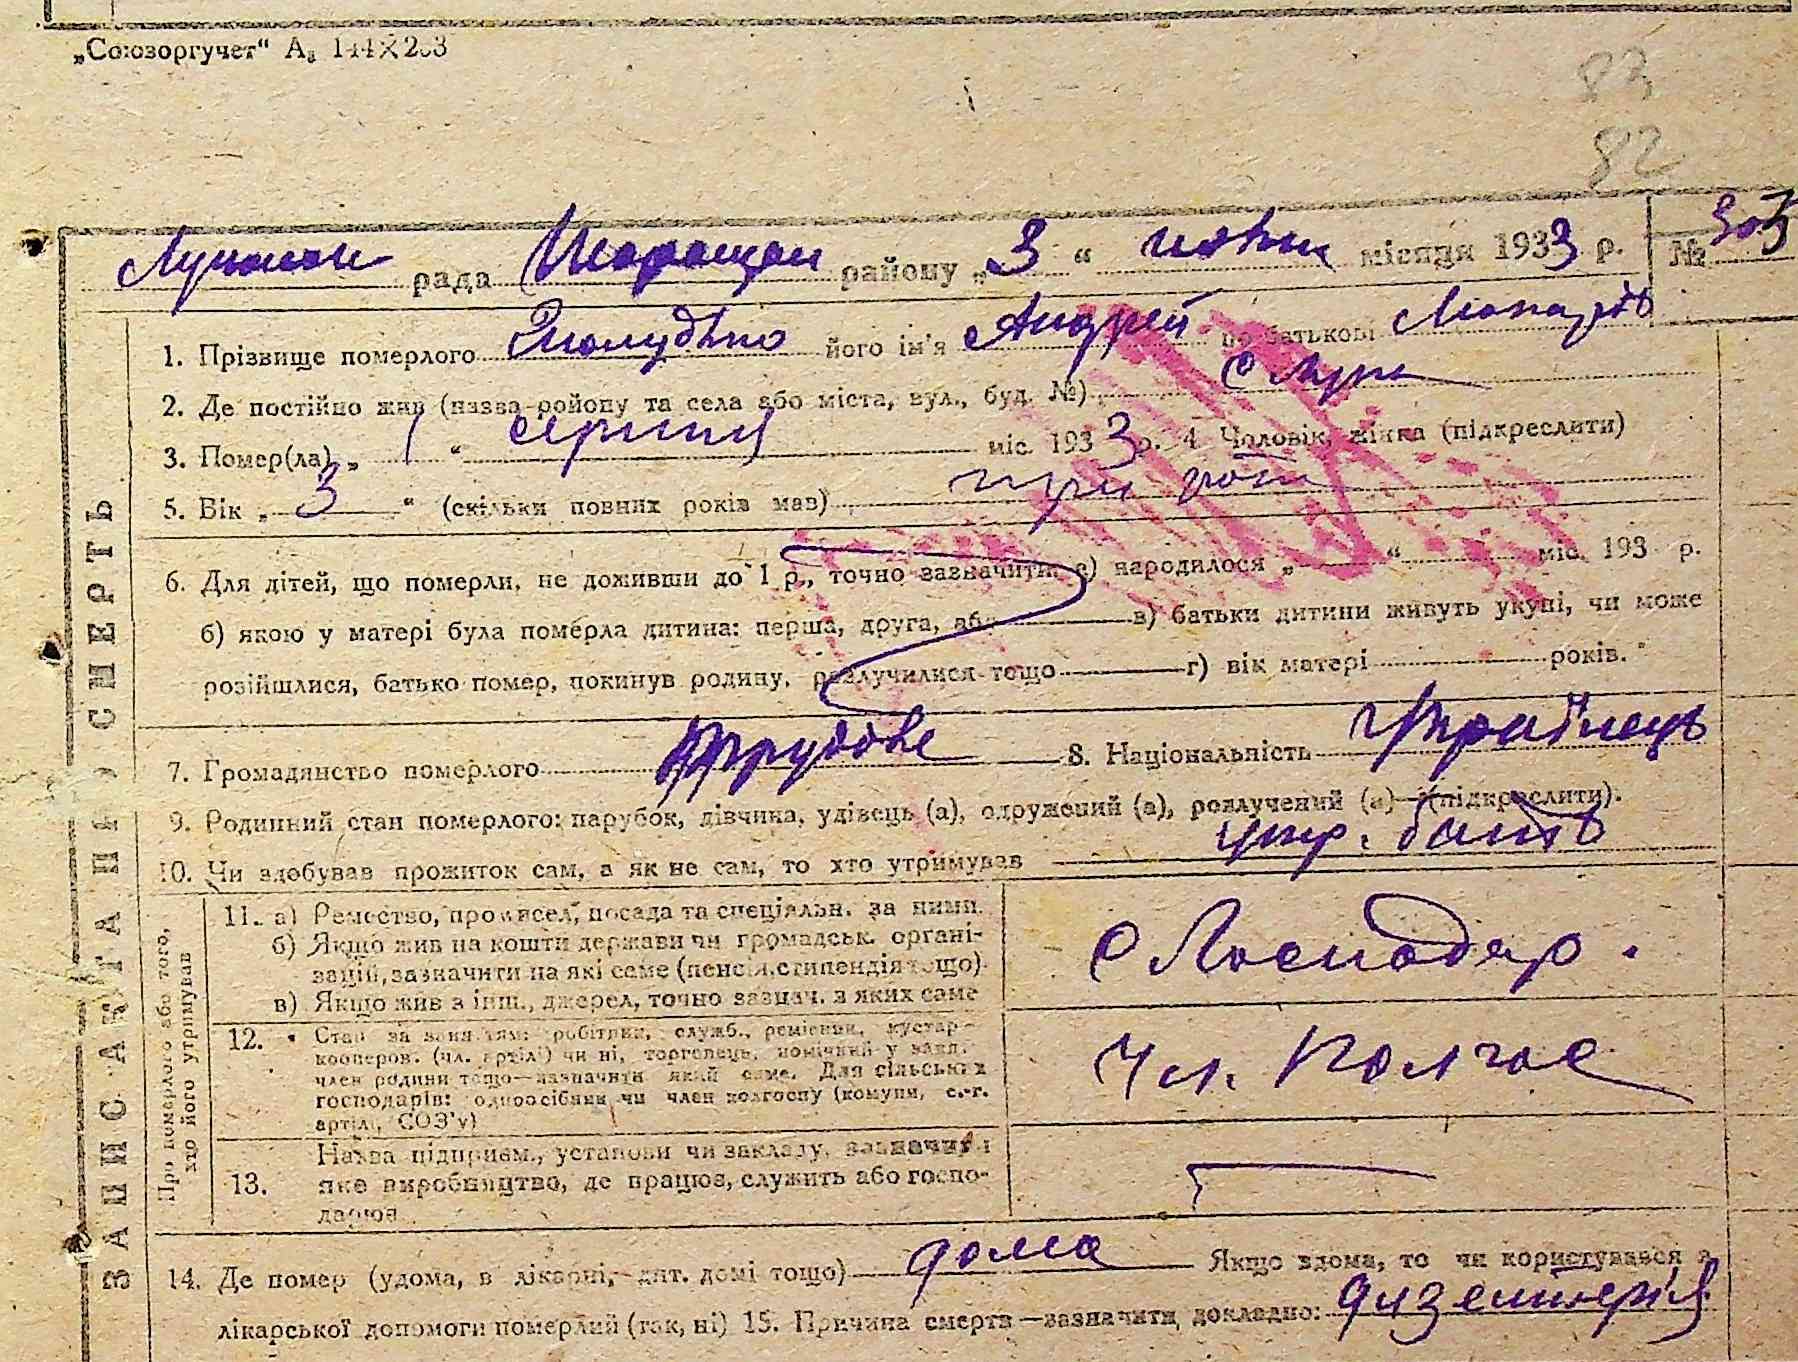 „Союзоргучет“ А₅ 144×203
83
82
рада району „3“ місяця 1933 р. №
1. Прізвище померлого його ім'я Андрей по батькові
2. Де постійно жив (назва району та села або міста, вул., буд. №) с
3. Помер(ла) „1“ серпня міс. 1933 р. 4. Чоловік, жінка (підкреслити)
5. Вік „3“ (скільки повних років мав) три
6. Для дітей, що померли, не доживши до 1 р., точно зазначити: а) народилося „ “ міс. 193 р.
б) якою у матері була померла дитина: перша, друга, або в) батьки дитини живуть укупі, чи може
розійшлися, батько помер, покинув родину, розлучилися тощо г) вік матері років.
7. Громадянство померлого 8. Національність Українець
9. Родинний стан померлого: парубок, дівчина, удівець (а), одружений (а), розлучений (а)—(підкреслити).
10. Чи здобував прожиток сам, а як не сам, то хто утримував утр.
ЗАПИС АКТА ПРО СМЕРТЬ
Про померлого або того, хто його утримував
11. а) Ремество, промисел, посада та спеціальн. за ними.
б) Якщо жив на кошти держави чи громадськ. органі-
зацій, зазначити на які саме (пенсія, стипендія тощо)
в) Якщо жив з інш., джерел, точно зазнач. з яких саме
с Господар.
12. Стан за заняттям: робітник, служб., ремісник, кустар-
кооперов. (чл. артілі) чи ні, торговець, помічний у занят.
член родини тощо—зазначити який саме. Для сільських
господарів: одноосібник чи член колгоспу (комуни, с.-г.
артілі, СОЗ'у)
Чл. Колгос
13. Назва підприєм., установи чи закладу, зазначити
яке виробництво, де працює, служить або госпо-
дарює
14. Де помер (удома, в лікарні, дит. домі тощо) дома Якщо вдома, то чи користувався з
лікарської допомоги померлий (так, ні) 15. Причина смерти—зазначити докладно: дизентерія